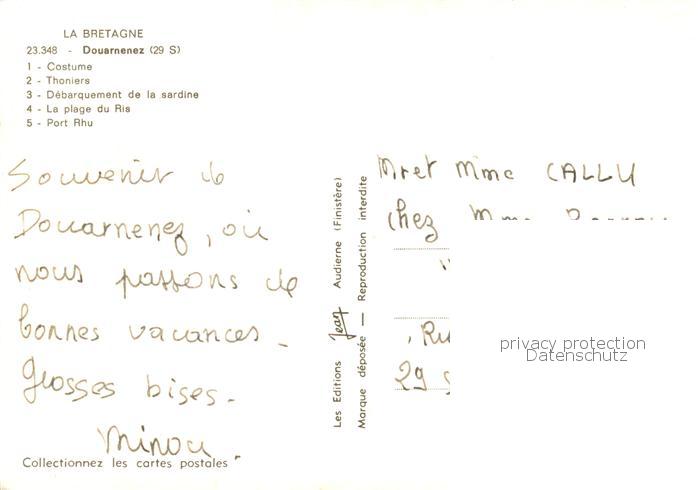 LA BRETAGNE
23.348 - Douarnenez (29 S)
1 - Costume
2 - Thoniers
3 - Débarquement de la sardine
4 - La plage du Ris
5 - Port Rhu
Souvenir de
Douarnenez, où
nous passons de
bonnes vacances.
Grosses bises.
Minou
Collectionnez les cartes postales
Les Editions Jean Audierne (Finistère)
Marque déposée — Reproduction interdite
Mr et Mme CALLU
chez Mme
, Ru
29 S
privacy protection
Datenschutz